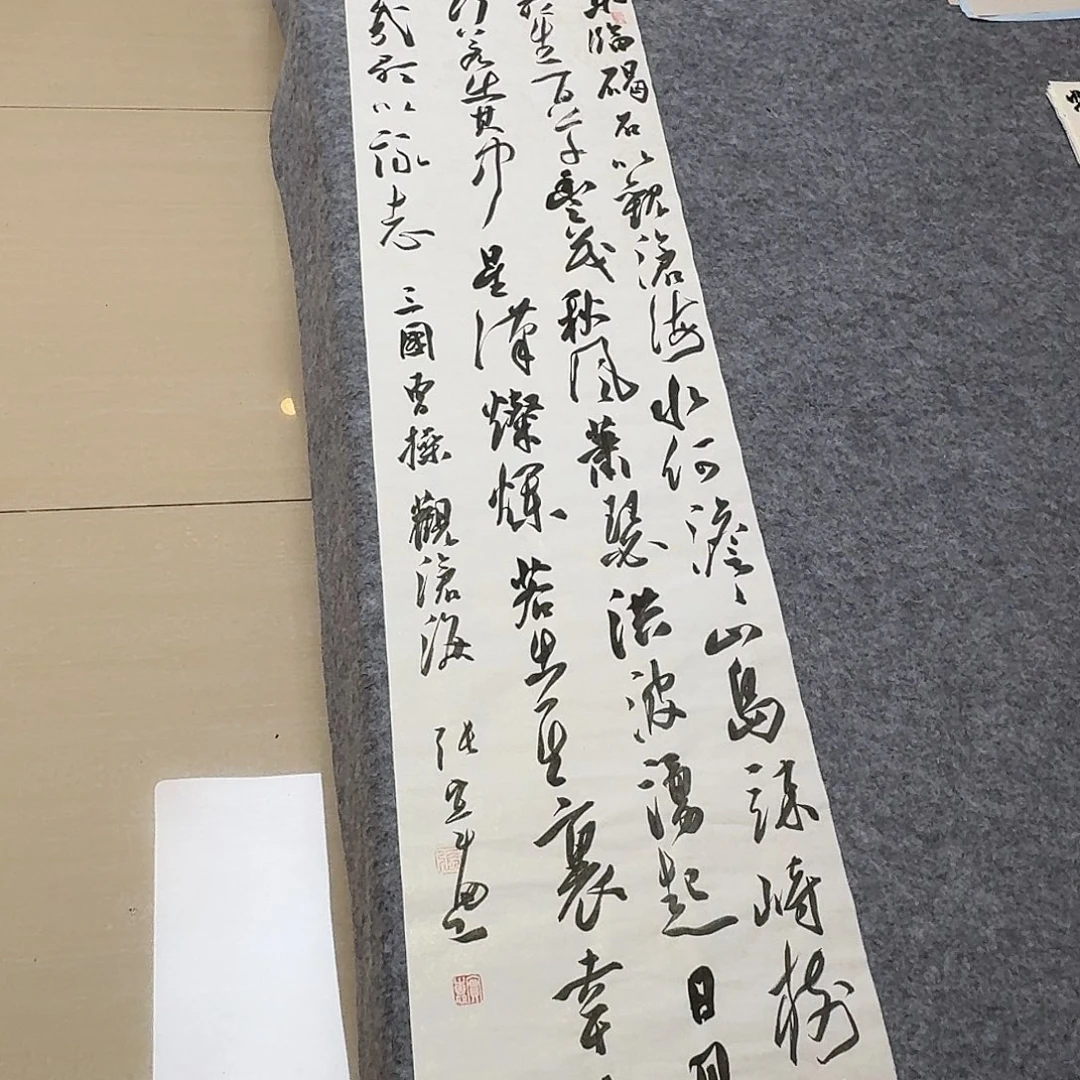 臨碣石以觀滄海水何澹〻山島竦峙樹
生百草豐茂秋風蕭瑟洪波湧起日月
行若出其中星漢燦爛若出其裏幸
哉歌以詠志 三國曹操觀滄海 張